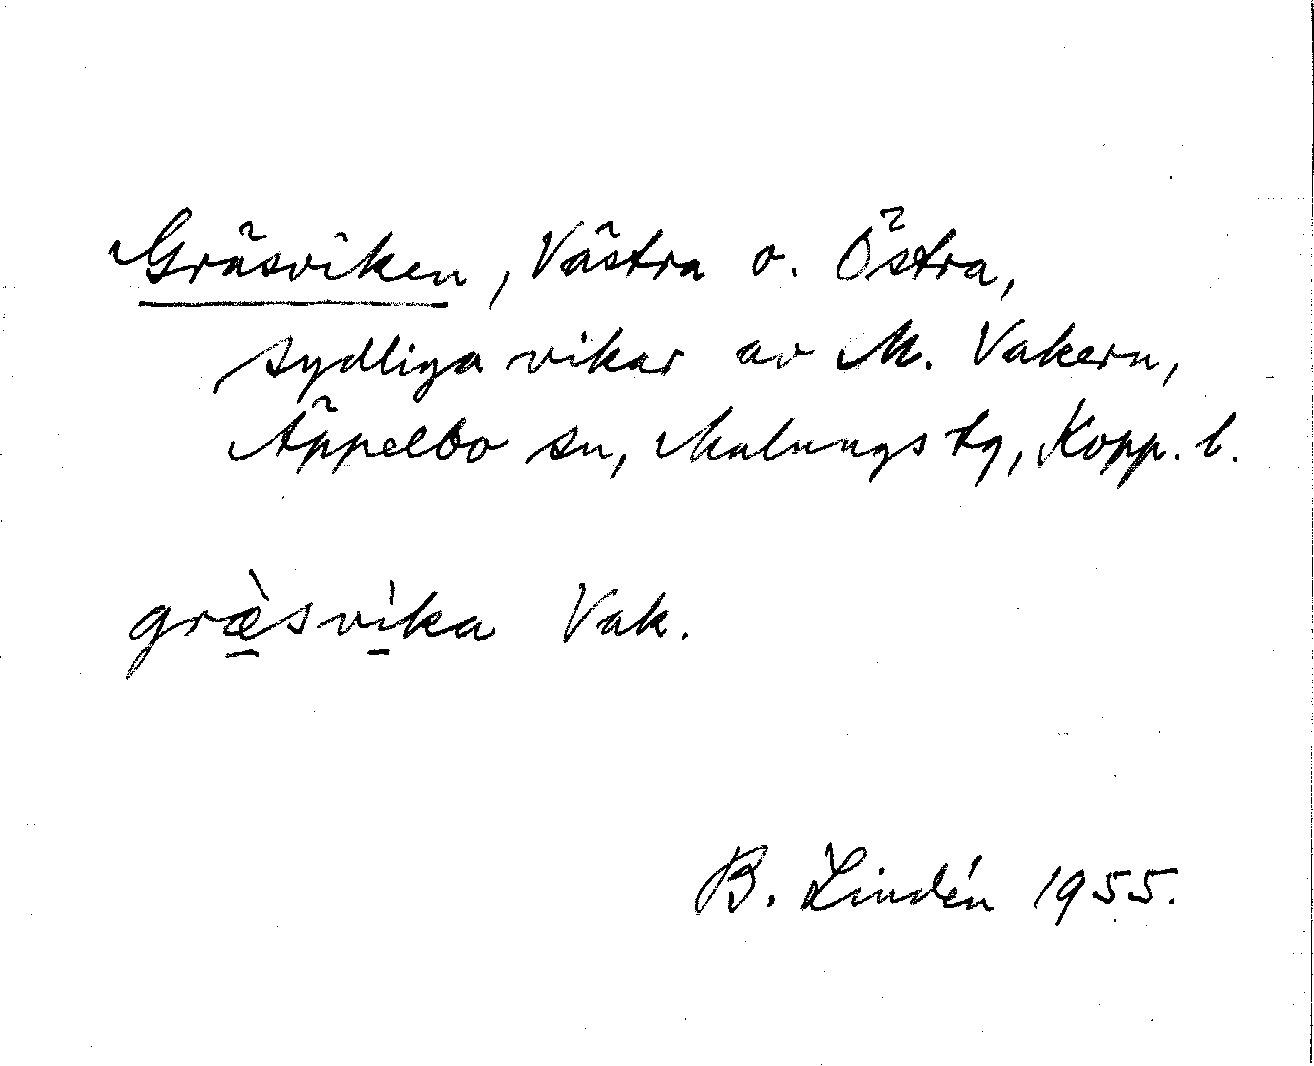 Gräsviken, Västra o. Östra,
sydliga vikar av M. Vakern,
Äppelbo sn, Malungs tg, Kopp. l.
græ̠̀svi̠̍ka Vak.
B. Lindén 1955.